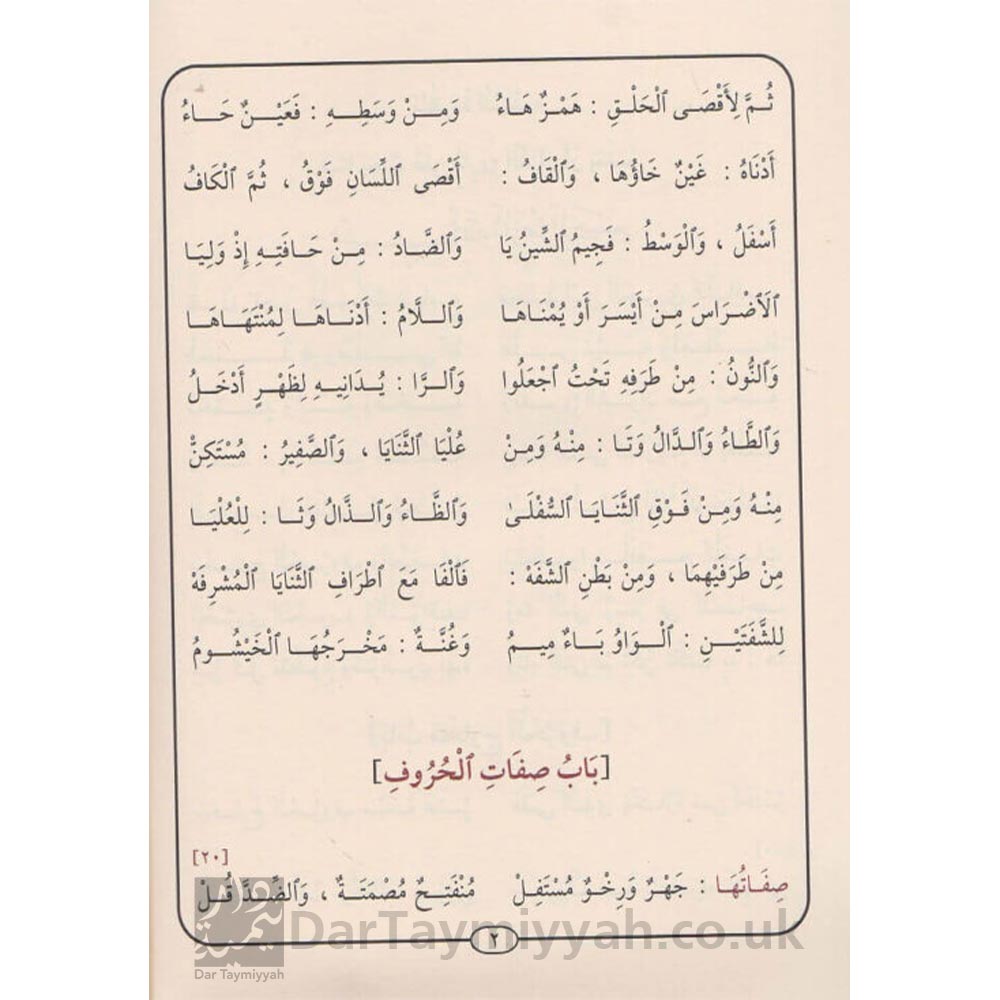 ثُمَّ لِأَقْصَى ٱلْحَلْقِ : هَمْزٌ هَاءُ وَمِنْ وَسَطِهِ : فَعَيْنٌ حَاءُ
أَدْنَاهُ : غَيْنٌ خَاؤُهَا ، وَٱلْقَافُ : أَقْصَى ٱللِّسَانِ فَوْقُ ، ثُمَّ ٱلْكَافُ
أَسْفَلُ ، وَٱلْوَسْطُ : فَجِيمُ ٱلشِّينُ يَا وَٱلضَّادُ : مِنْ حَافَتِهِ إِذْ وَلِيَا
ٱلَاضْرَاسَ مِنْ أَيْسَرَ أَوْ يُمْنَاهَا وَٱللَّامُ : أَدْنَاهَا لِمُنْتَهَاهَا
وَٱلنُّونُ : مِنْ طَرَفِهِ تَحْتُ ٱجْعَلُوا وَٱلرَّا : يُدَانِيهِ لِظَهْرٍ أَدْخَلُ
وَٱلطَّاءُ وَٱلدَّالُ وَتَا : مِنْهُ وَمِنْ عُلْيَا ٱلثَّنَايَا ، وَٱلصَّفِيرُ : مُسْتَكِنّْ
مِنْهُ وَمِنْ فَوْقِ ٱلثَّنَايَا ٱلسُّفْلَىٰ وَٱلظَّاءُ وَٱلذَّالُ وَثَا : لِلْعُلْيَا
مِنْ طَرَفَيْهِمَا ، وَمِنْ بَطْنِ ٱلشَّفَهْ : فَٱلْفَا مَعَ ٱطْرَافِ ٱلثَّنَايَا ٱلْمُشْرِفَهْ
لِلشَّفَتَيْنِ : ٱلْوَاوُ بَاءٌ مِيمُ وَغُنَّةٌ : مَخْرَجُهَا ٱلْخَيْشُومُ
[بَابُ صِفَاتِ ٱلْحُرُوفِ]
[٢٠]
صِفَاتُهَا : جَهْرٌ وَرِخْوٌ مُسْتَفِلْ مُنْفَتِحٌ مُصْمَتَةٌ ، وَٱلضِّدَّ قُلْ
DarTaymiyyah.co.uk
Dar Taymiyyah
٢